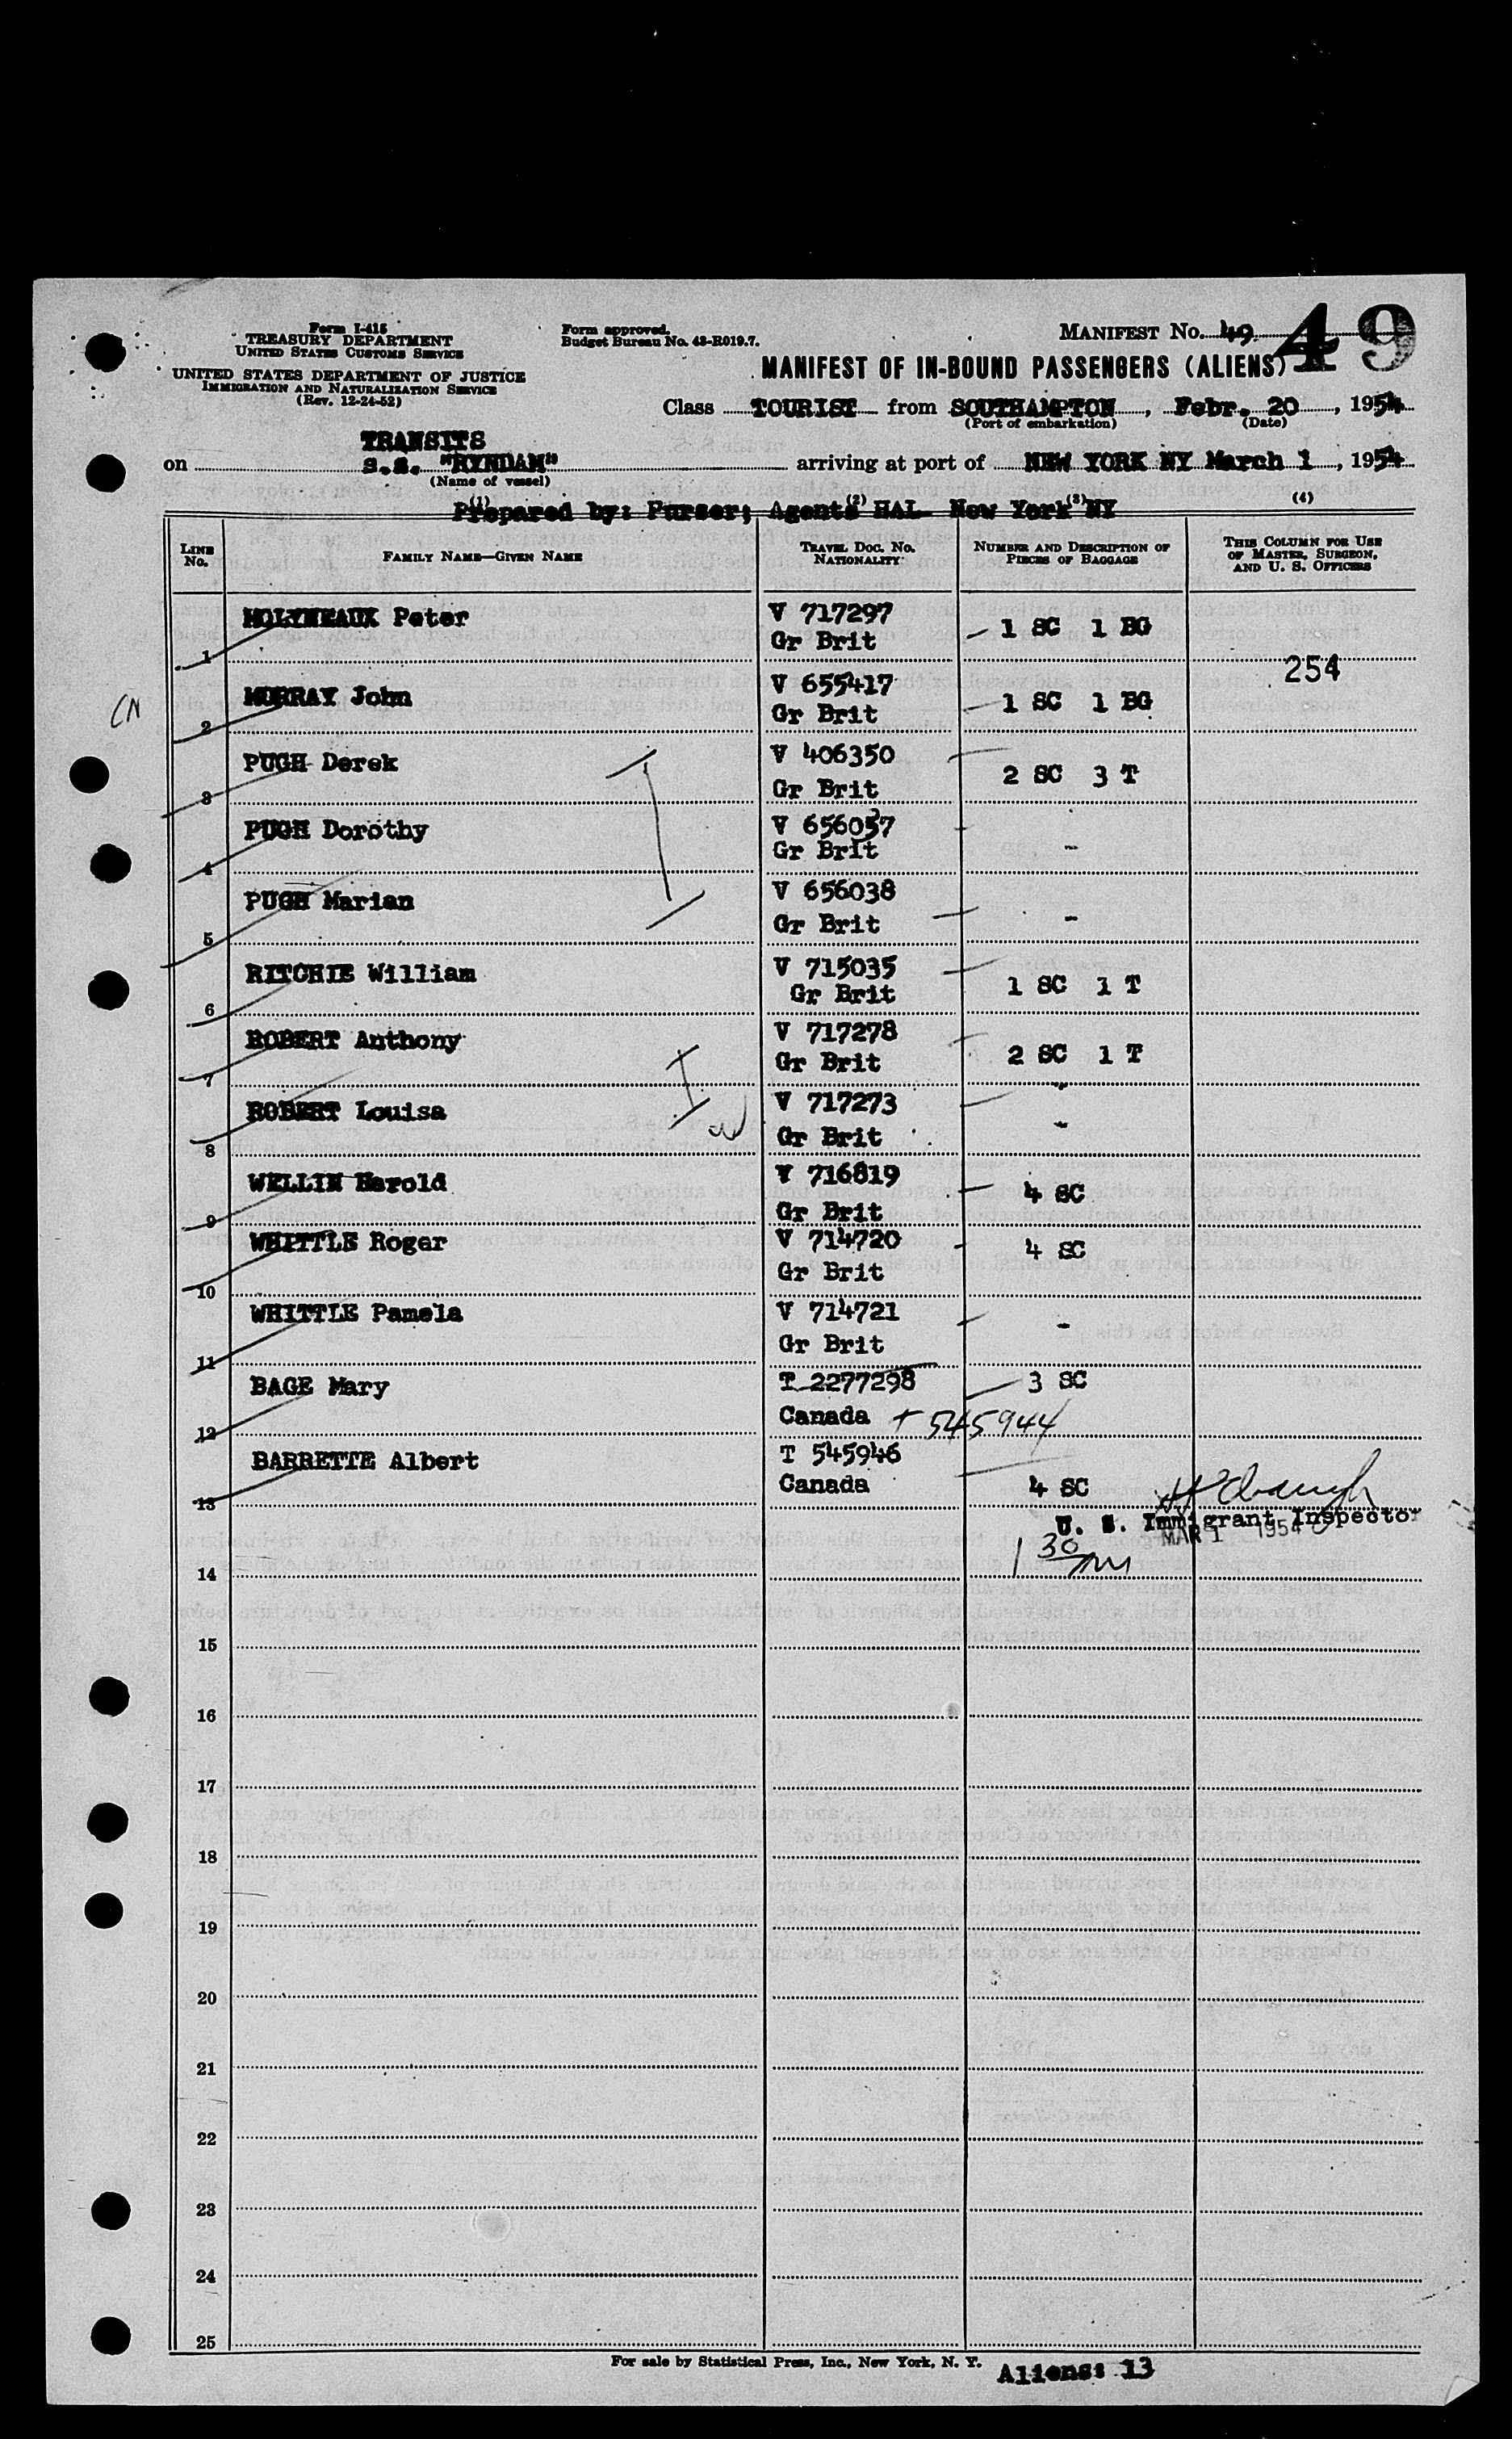 Form I-415
TREASURY DEPARTMENT
UNITED STATES CUSTOMS SERVICE
UNITED STATES DEPARTMENT OF JUSTICE
IMMIGRATION AND NATURALIZATION SERVICE
(Rev. 12-24-52)
Form approved.
Budget Bureau No. 43-R019.7.
MANIFEST No. 49 49
MANIFEST OF IN-BOUND PASSENGERS (ALIENS)
Class TOURIST from SOUTHAMPTON, Febr. 20, 1954
(Port of embarkation) (Date)
TRANSITS
on S.S. "RYNDAM" arriving at port of NEW YORK NY March 1, 1954
(Name of vessel)
(1) (2) (3) (4)
Prepared by: Purser; Agents HAL New York NY
LINE No. FAMILY NAME—GIVEN NAME TRAVEL DOC. No. NATIONALITY NUMBER AND DESCRIPTION OF PIECES OF BAGGAGE THIS COLUMN FOR USE OF MASTER, SURGEON, AND U. S. OFFICERS
1 MOLYNEAUX Peter V 717297 Gr Brit 1 SC 1 BG
254
CN 2 MURRAY John V 655417 Gr Brit 1 SC 1 BG
3 PUGH Derek V 406350 Gr Brit 2 SC 3 T
4 PUGH Dorothy V 656037 Gr Brit -
5 PUGH Marian V 656038 Gr Brit -
6 RITCHIE William V 715035 Gr Brit 1 SC 1 T
7 ROBERT Anthony V 717278 Gr Brit 2 SC 1 T
8 ROBERT Louisa V 717273 Gr Brit -
9 WELLIN Harold V 716819 Gr Brit 4 SC
10 WHITTLE Roger V 714720 Gr Brit 4 SC
11 WHITTLE Pamela V 714721 Gr Brit -
12 BAGE Mary T 2277298 Canada T 545944 3 SC
13 BARRETTE Albert T 545946 Canada 4 SC
U. S. Immigrant Inspector
MAR 1 1954
1 30
14
15
16
17
18
19
20
21
22
23
24
25
For sale by Statistical Press, Inc., New York, N. Y.
Aliens: 13